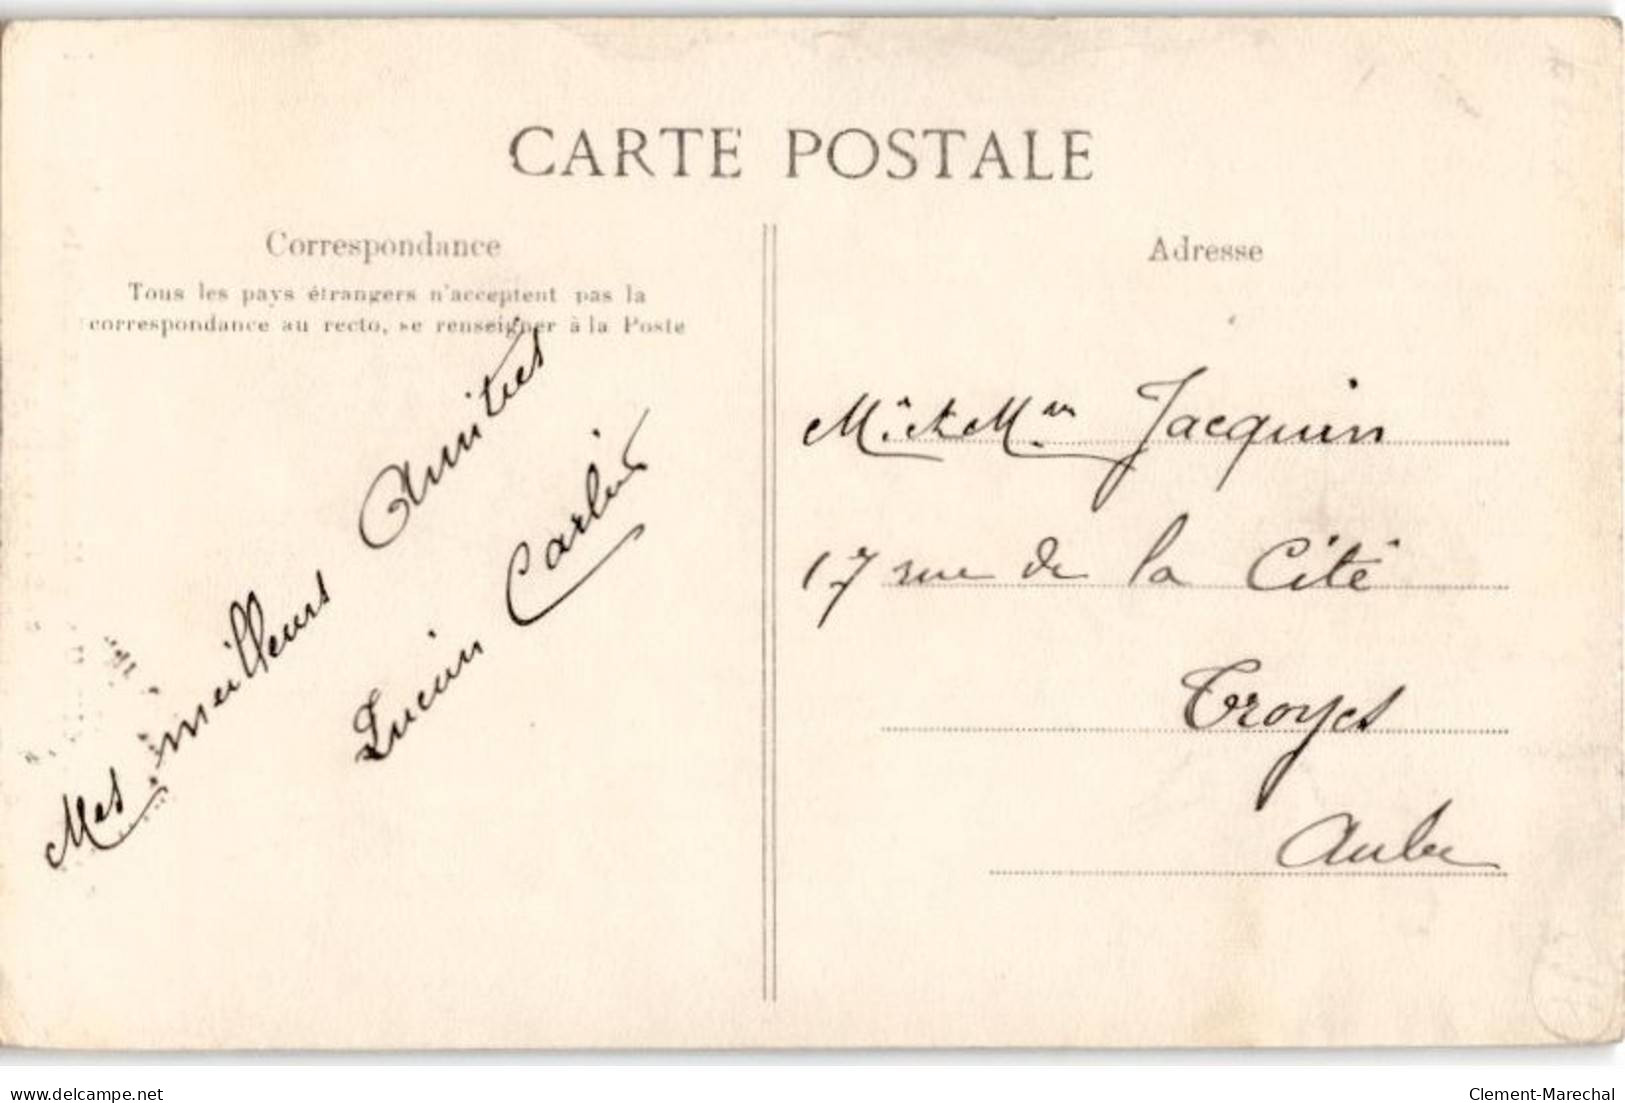 CARTE POSTALE
Correspondance
Tous les pays étrangers n'acceptent pas la
correspondance au recto, se renseigner à la Poste
Mes meilleurs Amitiés
Lucien Carlin
Adresse
Mr et Mme Jacquin
17 rue de la Cité
Troyes
Aube
delcampe.net
Clement-Marechal